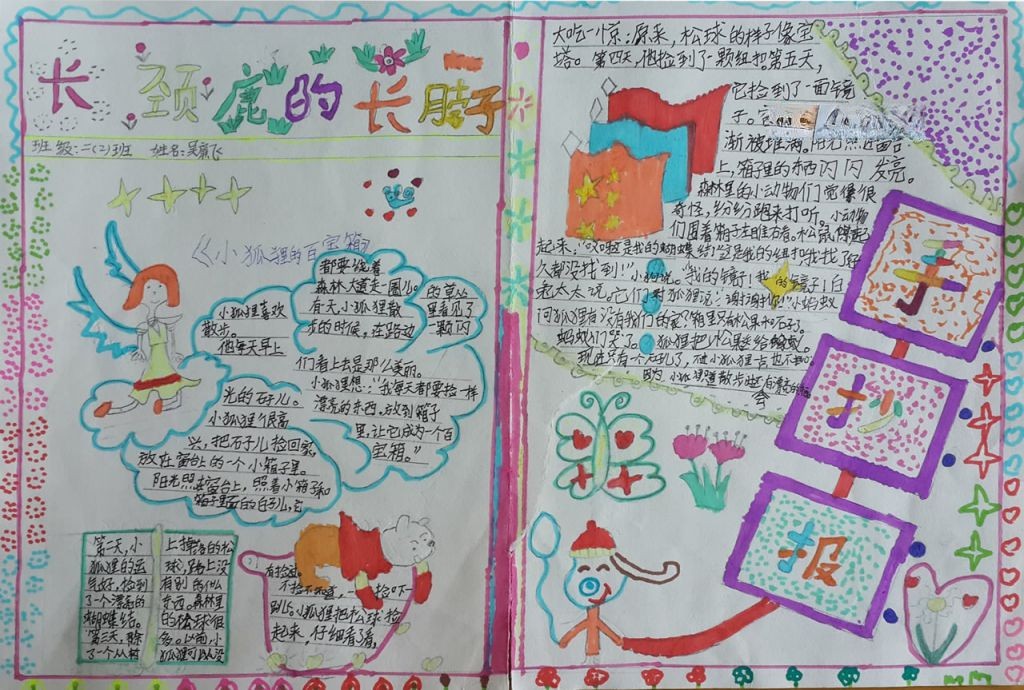 长颈鹿的长脖子
班级:二(2)班 姓名:吴
《小狐狸的百宝箱》
小狐狸喜欢
散步。
他每天早上
都要绕着
森林大道走一圈儿。
有天,小狐狸散
步的时候,在路边
的草丛
里看见了
一颗闪
光的石子儿。
小狐狸很高
兴,把石子儿捡回家,
放在窗台上的一个小箱子里。
阳光照在窗台上,照着小箱子和
箱子里面的石子儿,它
们看上去是那么美丽。
小狐狸想:“我每天都要捡一样
漂亮的东西,放到箱子
里,让它成为一个百
宝箱。”
第二天,小
狐狸的运
气好,捡到
了一个漂亮的
蝴蝶结。
第三天,除
了一个从树
上掉落的松
球,路上没
有别的什么
东西。森林里
的松球很
多。以前小
狐狸可从没
有捡过。
不捡不知道,一捡吓一
小狐狸把松球捡
起来,仔细看了看,
大吃一惊:原来,松球的样子像宝
塔。第四天,他捡到了一颗纽扣。第五天,
它捡到了一面镜
子。
渐被堆满。阳光照在窗台
上,箱子里的东西闪闪发亮。
森林里的小动物们觉得很
奇怪,纷纷跑来打听。小动物
们围着箱子
起来:“哎呀这是我的蝴蝶结!这是我的纽扣我找了好
久都没找到!”小狗说。“我的镜子!我的镜子!”白
兔太太说。它们对狐狸说:“谢谢你!”小蚂蚁
问狐狸有没有我们的
蚂蚁们哭了。小狐狸把松果送给蚂蚁。
现在只有一个石子儿了,
手抄报